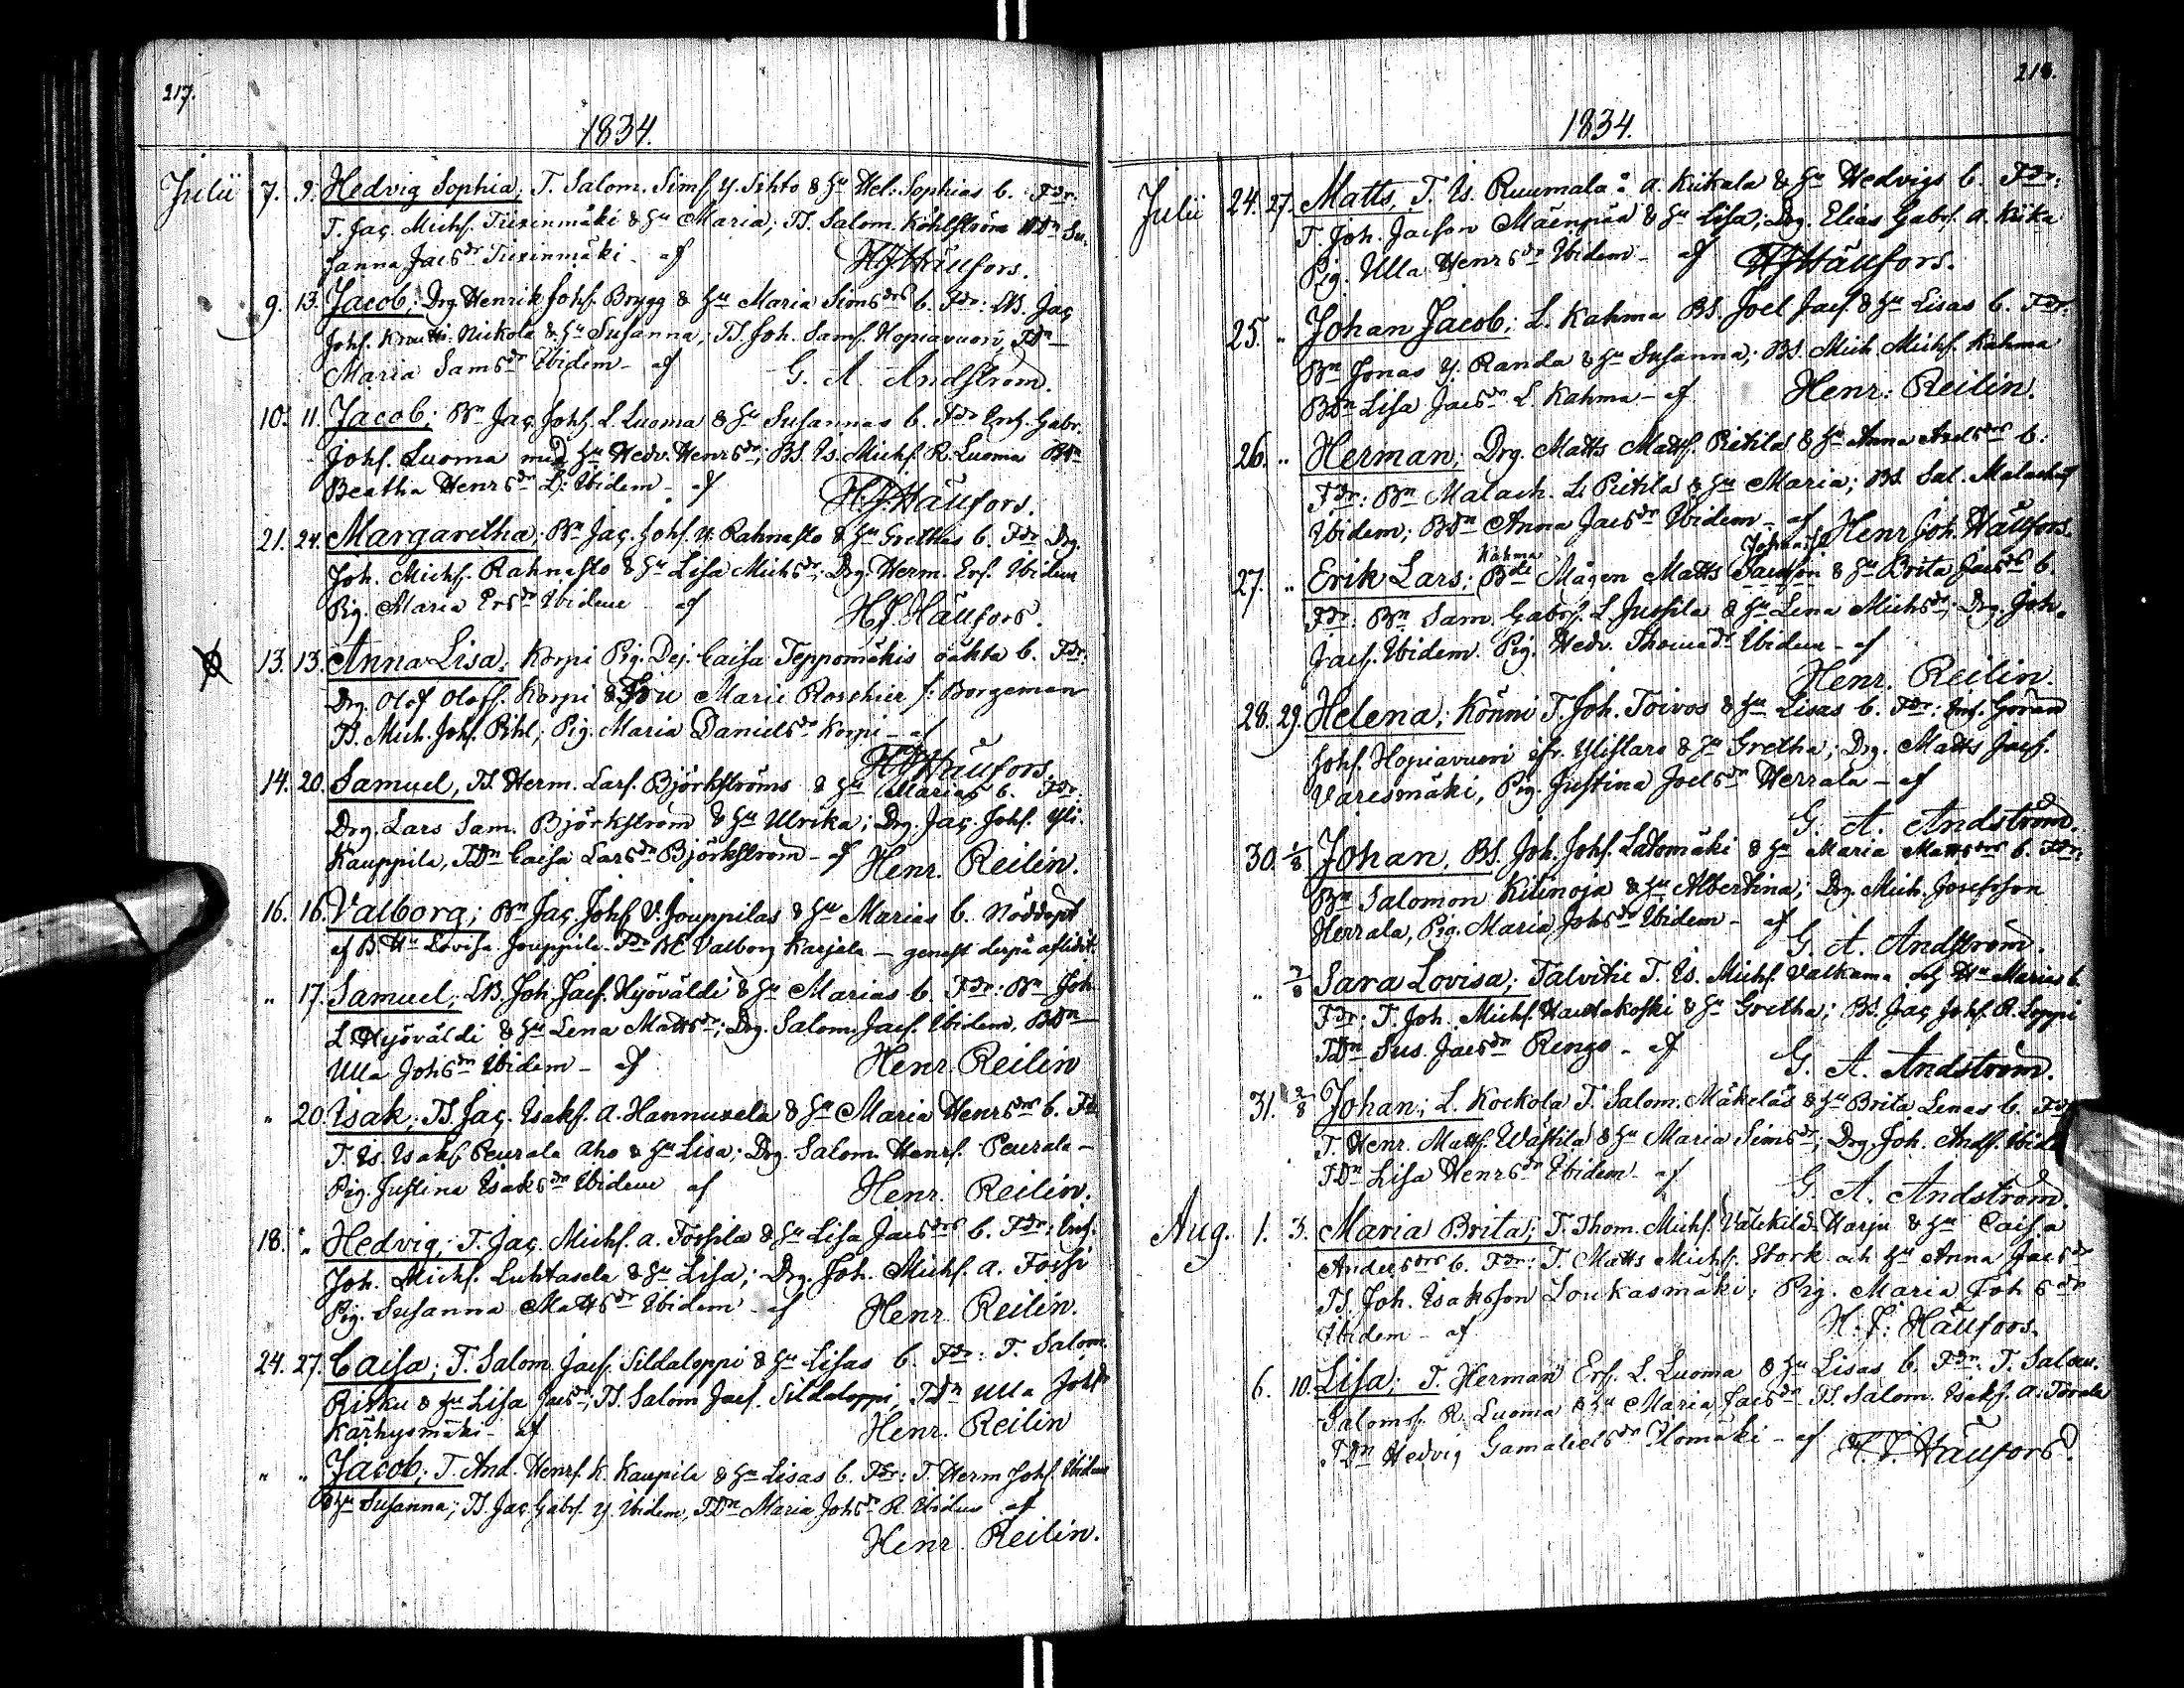 217.
1834.
Julii 7. 9. Hedvig Sophia; T. Salom. Simf. Y. Sihto & Hu Hel: Sophias b. Fdr:
T. Jac. Michf. Tuxinmäki & Hu Maria; TS. Salom. Kohlström TDn Su-
sanna Jacsdr Tuxinmäki - af HJHällfors.
9. 13. Jacob; Drg Henrik Johf. Brygg & Hu Maria Simsdrs b. Fdr: LB. Jac
Johf. Knutti Nickola & Hu Susanna; TS. Joh. Samf. Hopiavuori, TDn
Maria Samsdr Ibidem - af G. A. Andström.
10. 11. Jacob; Bn Jac. Johf. L. Luoma & Hu Susannas b. Fdr Enh. Gabr.
Johf. Luoma med Hu Hedv. Henrsdr; BS. Is. Michf. R. Luoma BDn
Beatha Henrsdr L: Ibidem - af H.J. Hällfors.
21. 24. Margaretha; Bn Jac. Johf. Y. Rahnasto & Hu Grethas b. Fdr Drg.
Joh. Michf. Rahnasto & Hu Lisa Michsdr; Drg. Herm. Erf. Ibidem
Pig. Maria Ersdr Ibidem af H.J. Hällfors.
13. 13. Anna Lisa; Korpi Pig. Dej. Caisa Teppomäkis oäkta b. Fdr:
Drg. Olof Olofsf. Korpi & Fru Marie Roschier f: Borgeman
TS. Mich. Johf. Pihl; Pig. Maria Danielsdr Korpi - af
HJHällfors.
14. 20. Samuel, TS Herm. Larf. Björkströms & Hu Marias b. Fdr:
Drg. Lars Sam. Björkström & Hu Ulrika; Drg. Jac. Johf. Yli-
Kauppila, TDn Caisa Larsdr Björkström - af Henr. Reilin.
16. 16. Valborg; Bn Jac. Johf. Y. Jouppilas & Hu Marias b. Nöddöpt
af B. Hu Lovisa Jouppila. Fdr BE Valborg Karjala - genast derpå afledit.
" 17. Samuel; LB. Joh. Jacf. Hyöväldi & Hu Marias b. Fdr: Bn Joh.
L. Hyöväldi & Hu Lena Mattsdr; Drg. Salom. Jacf. Ibidem, BDn
Ulla Johsdr Ibidem - af Henr. Reilin
" 20. Isak; TS. Jac. Isakf. A. Hannuxela & Hu Maria Henrsdrs b. Fdr
T. Is. Isakf. Peurala Aho & Hu Lisa; Drg. Salom. Henrf. Peurala -
Pig. Justina Isaksdr Ibidem af Henr. Reilin.
18. " Hedvig; T. Jac. Michf. A. Fossila & Hu Lisa Jacsdrs b. Fdr: Enh.
Joh. Michf. Luhtasela & Hu Lisa; Drg. Joh. Michf. A. Fossi
Pig. Susanna Mattsdr Ibidem - af Henr. Reilin.
24. 27. Caisa; T. Salom. Jacf. Sildaloppi & Hu Lisas b. Fdr: T. Salom.
Risku & Hu Lisa Jacsdr; TS. Salom Jacf. Sildaloppi, TDn Ulla Johsdr
Karhysmäki - af Henr. Reilin
" " Jacob; T. And. Henrf. K. Kaupila & Hu Lisas b. Fdr: T. Herm Johf. Ibidem
& Hu Susanna; TS. Jac. Gabrf. Y. Ibidem, TDn Maria Johsdr R. Ibidem af
Henr. Reilin.
218.
1834.
Julii 24. 27. Matts, T. Is. Ruumala: A. Kiikala & Hu Hedvigs b. Fdr:
T. Joh. Jacson Mäenpää & Hu Lisa; Drg. Elias Gabrf. A. Kiika
Pig. Ulla Henrsdr Ibidem - af HJHällfors.
25. " Johan Jacob; L. Kahma BS. Joel Jacf. & Hu Lisas b. Fdr:
Bn Jonas Y. Randa & Hu Susanna; BS. Mich. Michf. Kahma
BDn Lisa Jacsdr L. Kahma - af Henr: Reilin.
26. " Herman; Drg. Matts Mattf. Pietilas & Hu Anna Axelsdrs b.
Fdr: Bn Malach. L. Pietila & Hu Maria; BS. Sal. Malachf.
Ibidem; BDn Anna Jacsdr Ibidem - af Henr Joh. Hällfors.
27. " Erik Lars; Kahma Bde Mågen Matts Jacson Johansf & Hu Brita Jacsdrs b.
Fdr: Bn Sam. Gabrf. L. Jussila & Hu Lena Michsdr; Drg. Joh.
Jacf. Ibidem. Pig. Hedv. Thomædr Ibidem - af
Henr. Reilin.
28. 29. Helena; Könni T. Joh. Toivos & Hu Lisas b. Fdr: Enh. Göran
Johf. Hopiavuori ifr. Ylistaro & Hu Gretha; Drg. Matts Jacf.
Varesmäki, Pig. Justina Joelsdr Herrala - af
G. A. Andström.
30. 1/8 Johan, BS. Joh. Johf. Latomäki & Hu Maria Mattsdrs b. Fdr:
Bn Salomon Kitinoja & Hu Albertina; Drg. Mich. Josefsson
Herrala, Pig. Maria Johsdr Ibidem - af
G. A. Andström.
" 2/8 Sara Lovisa; Talvitie T. Is. Michf. Valkama och Hu Marias b.
Fdr: T. Joh. Michf. Hautakoski & Hu Gretha; BS. Jac Johf. R. Loppi
TDn Sus. Jacsdr Rengo - af G. A. Andström.
31. 2/8 Johan; L. Kockola T. Salom. Mäkeläs & Hu Brita Lenas b. Fdr
T. Henr. Mattf. Wästilä & Hu Maria Simsdr; Drg. Joh. Andf. Ibid
TDn Lisa Henrsdr Ibidem - af G. A. Andström.
Aug. 1. 3. Maria Brita; T. Thom. Michf. Harju & Hu Caisa
Andersdrs b. Fdr: T. Matts Michf. Stork och Hu Anna Jacsdr
TS. Joh. Isaksson Loukasmäki; Pig. Maria Johsdr
Ibidem - af H. J. Hällfors.
6. 10. Lisa; T. Herman Erf. L. Luoma & Hu Lisas b. Fdr: T. Salom.
Salomsf. R. Luoma & Hu Maria Jacsdr TS. Salom. Isakf. A. Törala
TDn Hedvig Gamalielsdr Ilomäki - af H. J. Hällfors.